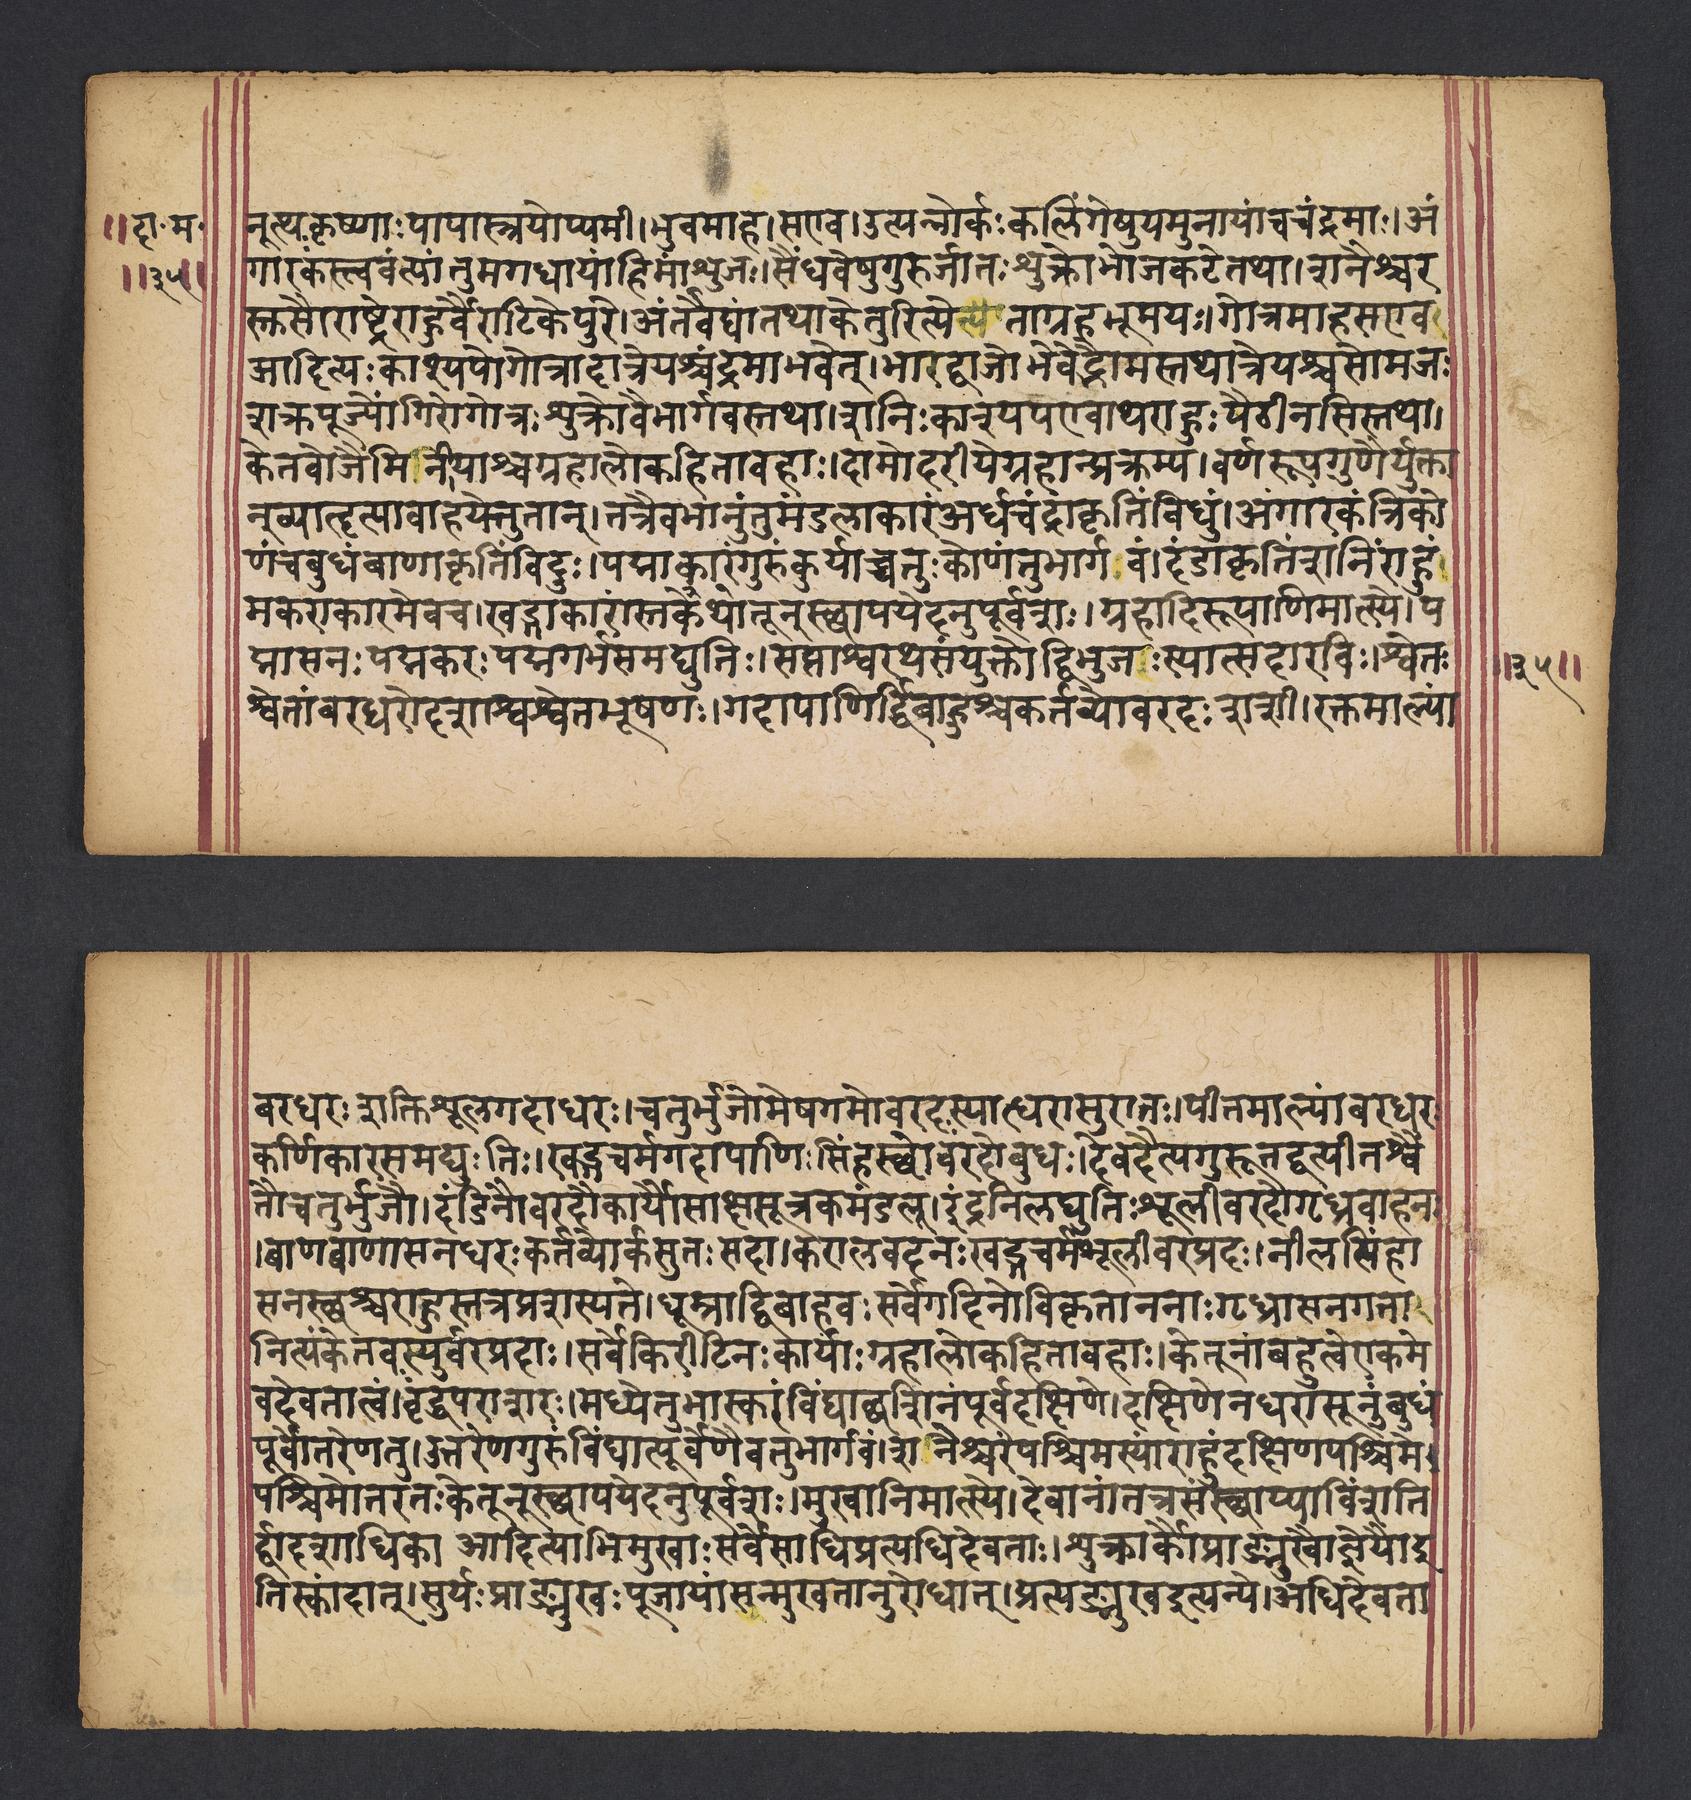 ॥दा·म·
॥३५॥
नूत्थकृष्णाःपापास्त्रयोप्यमी।भुवमाह।सएव।उत्पन्नोर्कःकलिंगेषुयमुनायांचचंद्रमाः।अं
गारकस्त्ववंत्यांतुमगधायांहिमांशुजः।सैंधवेषुगुरुर्जातःशुक्रोभोजकटेतथा।शनैश्चर
स्तुसौराष्ट्रेराहुर्वैराटिकेपुरे।अंतर्वेद्यांतथाकेतुरित्येताग्रहभूमयः।गोत्रमाहसएव
आदित्यःकाश्यपोगोत्रादात्रेयश्चंद्रमाभवेत्।भारद्वाजोभवेद्भौमस्तथात्रेयश्चसोमजः
शक्रपूज्योंगिरोगोत्रःशुक्रोवैभार्गवस्तथा।शनिःकाश्यपएवाथराहुःपैठीनसिस्तथा।
केतवोजैमिनीयाश्चग्रहालोकहितावहाः।दामोदरीयेग्रहान्प्रक्रम्य।वर्णरूपगुणैर्युक्ता
न्व्याहृत्यावाहयेत्तुतान्।तत्रैवभानुंतुमंडलाकारंअर्धचंद्राकृतिंविधुं।अंगारकंत्रिको
णंचबुधंबाणाकृतिंविदुः।पद्माकारंगुरुंकुर्याच्चतुःकोणंतुभार्गवं।दंडाकृतिंशनिंराहुं
मकराकारमेवच।खड्गाकारांस्तकेथोतून्स्थापयेदनुपूर्वशः।ग्रहादिरूपाणिमात्स्ये।प
द्मासनःपद्मकरःपद्मगर्भसमद्युतिः।सप्ताश्वरथसंयुक्तोद्विभुजःस्यात्सदारविः।श्वेतः
श्वेतांबरधरोदशाश्वश्वेतभूषणः।गदापाणिर्द्विबाहुश्चकर्तव्योवरदःशशी।रक्तमाल्यां
॥३५॥
बरधरःशक्तिशूलगदाधरः।चतुर्भुजोमेषगमोवरदःस्याद्धरासुतः।पीतमाल्यांबरधरः
कर्णिकारसमद्युःतिः।खड्गचर्मगदापाणिःसिंहस्थोवरदोबुधः।देवदैत्यगुरूतद्वत्पीतश्वे
तौचतुर्भुजौ।दंडिनौवरदौकार्यौसाक्षसूत्रकमंडलू।इंद्रनिलद्युतिःशूलीवरदोगृध्रवाहनः
।बाणबाणासनधरःकर्तव्योर्कसुतःसदा।करालवदनःखड्गचर्मशूलीवरप्रदः।नीलसिंहा
सनस्थश्चराहुस्तत्रप्रशस्यते।धूम्राद्विबाहवःसर्वेगदिनोविकृताननाःगृध्रासनगता
नित्यंकेतवस्युर्वरप्रदाः।सर्वेकिरीटिनःकार्याःग्रहालोकहितावहाः।केतूनांबहुत्वेएकमे
वदेवतात्वं।वृद्धपराशरः।मध्येतुभास्करंविंद्याछशिनंपूर्वदक्षिणे।दक्षिणेनधरासूनुंबुधं
पूर्वोतरेणतु।उत्तरेणगुरुंविंद्यात्पूर्वेणैवतुभार्गवं।शनैश्चरंपश्चिमस्यांराहुंदक्षिणपश्चिमे।
पश्चिमोतरतःकेतून्स्थापयेदनुपूर्वशः।मुखानिमात्स्ये।देवानांतत्रसंस्थाप्याविंशति
र्द्वादशाधिका आदित्याभिमुखाःसर्वेसाधिप्रत्यधिदेवताः।शुक्रार्कौप्राङ्मुखौज्ञेयौदु
तिस्कांदात्।सुर्यःप्राङ्मुखःपूजायांसन्मुखतानुरोधात्।प्रत्यङ्मुखइत्यन्ये।अधिदेवता